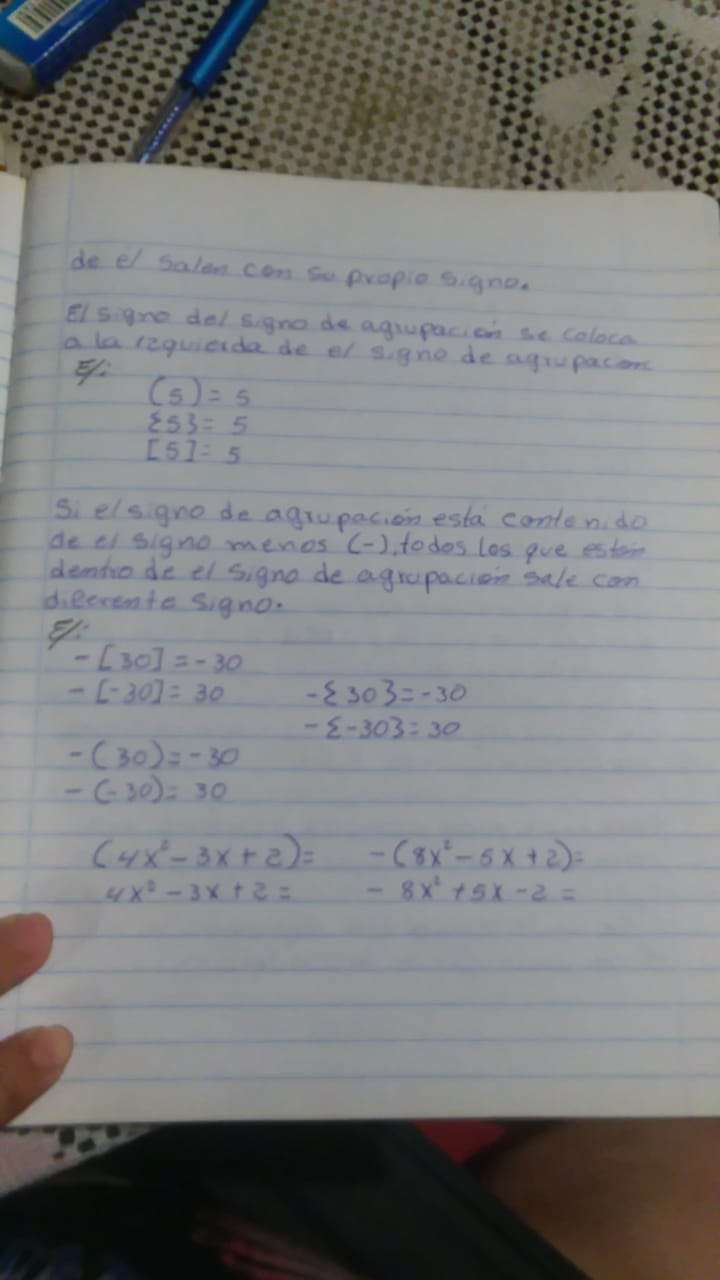 de el salen con su propio signo.
El signo del signo de agrupación se coloca
a la izquierda de el signo de agrupacion
Ej:
(5)= 5
{5}= 5
[5]= 5
Si el signo de agrupación está contenido
de el signo menos (-), todos los que están
dentro de el signo de agrupación sale con
diferente signo.
Ej:
-[30]=-30
-[-30]= 30 -{30}=-30
-{-30}=30
-(30)=-30
-(-30)= 30
(4x²-3x+2)= -(8x²-5x+2)=
4x²-3x+2= - 8x²+5x-2 =